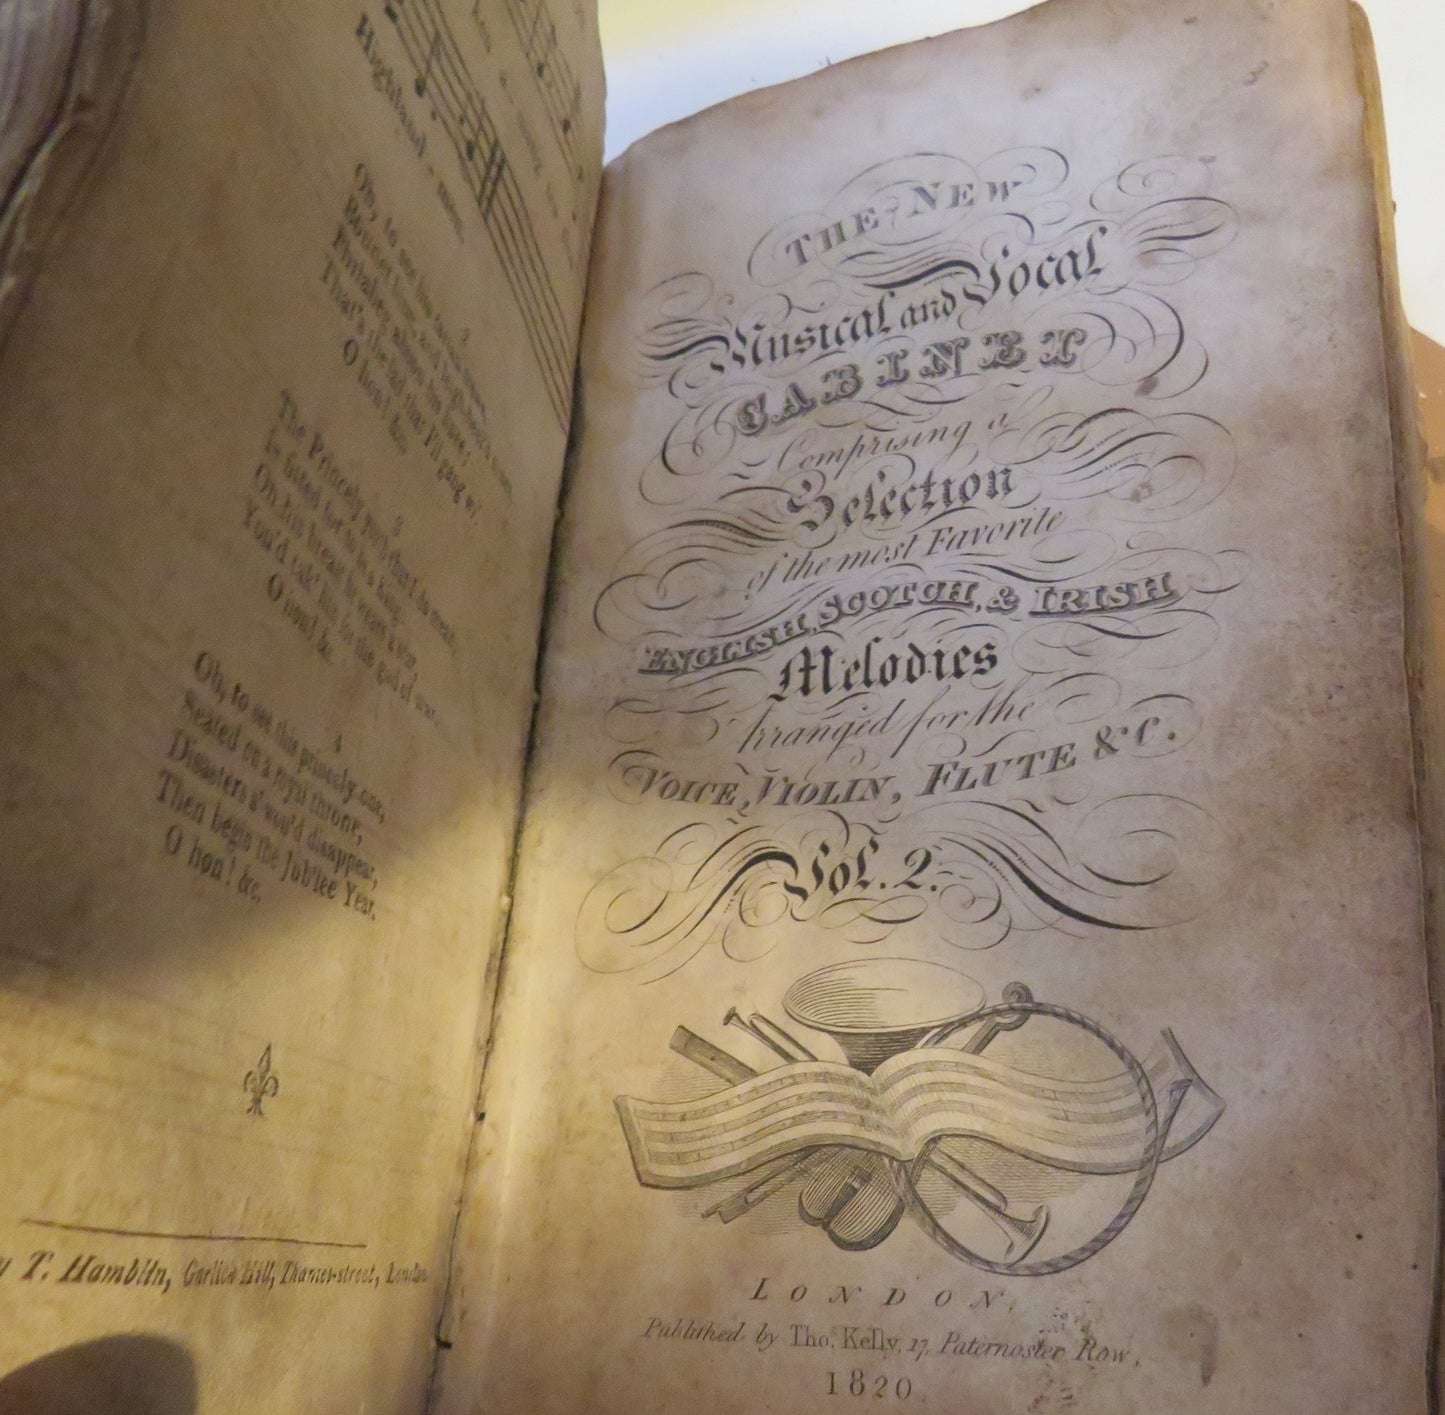 Highland - men.
2
Oh, to see his
Bonnet
That's the lad that I'll gang wi'
O hon! &c.
3
The Princely youth
is fitted for to be a king,
Oh his breast he wears a star
You'd tak' him for the god of war.
O hon! &c.
4
Oh, to see this princely one,
Seated on a royal throne,
Disasters a' wou'd disappear,
Then begins the Jub'lee Year,
O hon! &c.
T. Hamblin, Garlick Hill, Thames-street, London
THE NEW
Musical and Vocal
CABINET
Comprising a
Selection
of the most Favorite
ENGLISH, SCOTCH, & IRISH
Melodies
Arranged for the
VOICE, VIOLIN, FLUTE &c.
Vol. 2.
LONDON,
Published by Tho. Kelly, 17, Paternoster Row,
1820